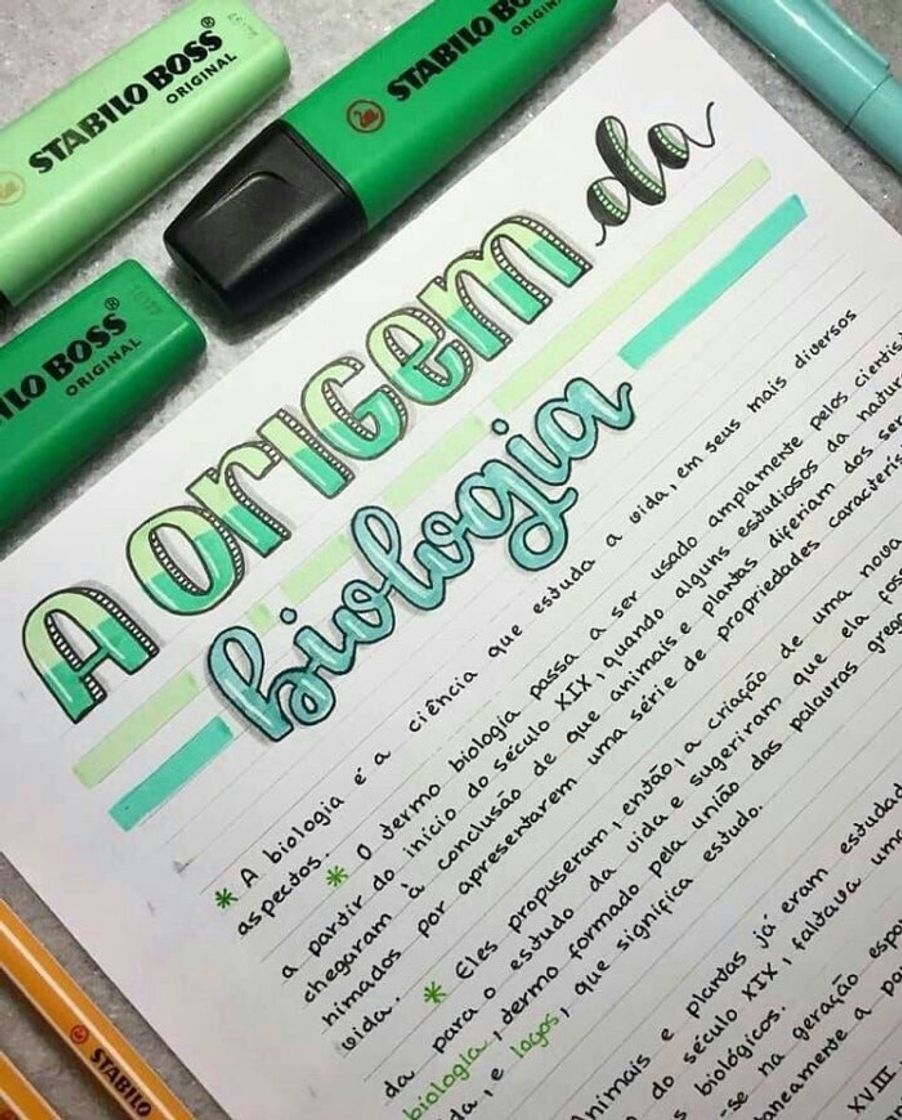 STABILO BOSS®
ORIGINAL
STABILO BOSS
ORIGINAL
ILO BOSS®
ORIGINAL
A origem da
biologia
* A biologia é a ciência que estuda a vida, em seus mais diversos
aspectos.
* O termo biologia passa a ser usado amplamente pelos cientis
a partir do início do século XIX, quando alguns estudiosos da natur
chegaram à conclusão de que animais e plantas diferiam dos ser
nimados por apresentarem uma série de propriedades caracterís
vida.
* Eles propuseram, então, a criação de uma nova
da para o estudo da vida e sugeriram que ela foss
biologia, termo formado pela união das palavras greg
da, e logos, que significa estudo.
Animais e plantas já eram estudad
do século XIX, faltava uma
s biológicos.
-se na geração espo
neamente a pa
XVIII
STABILO